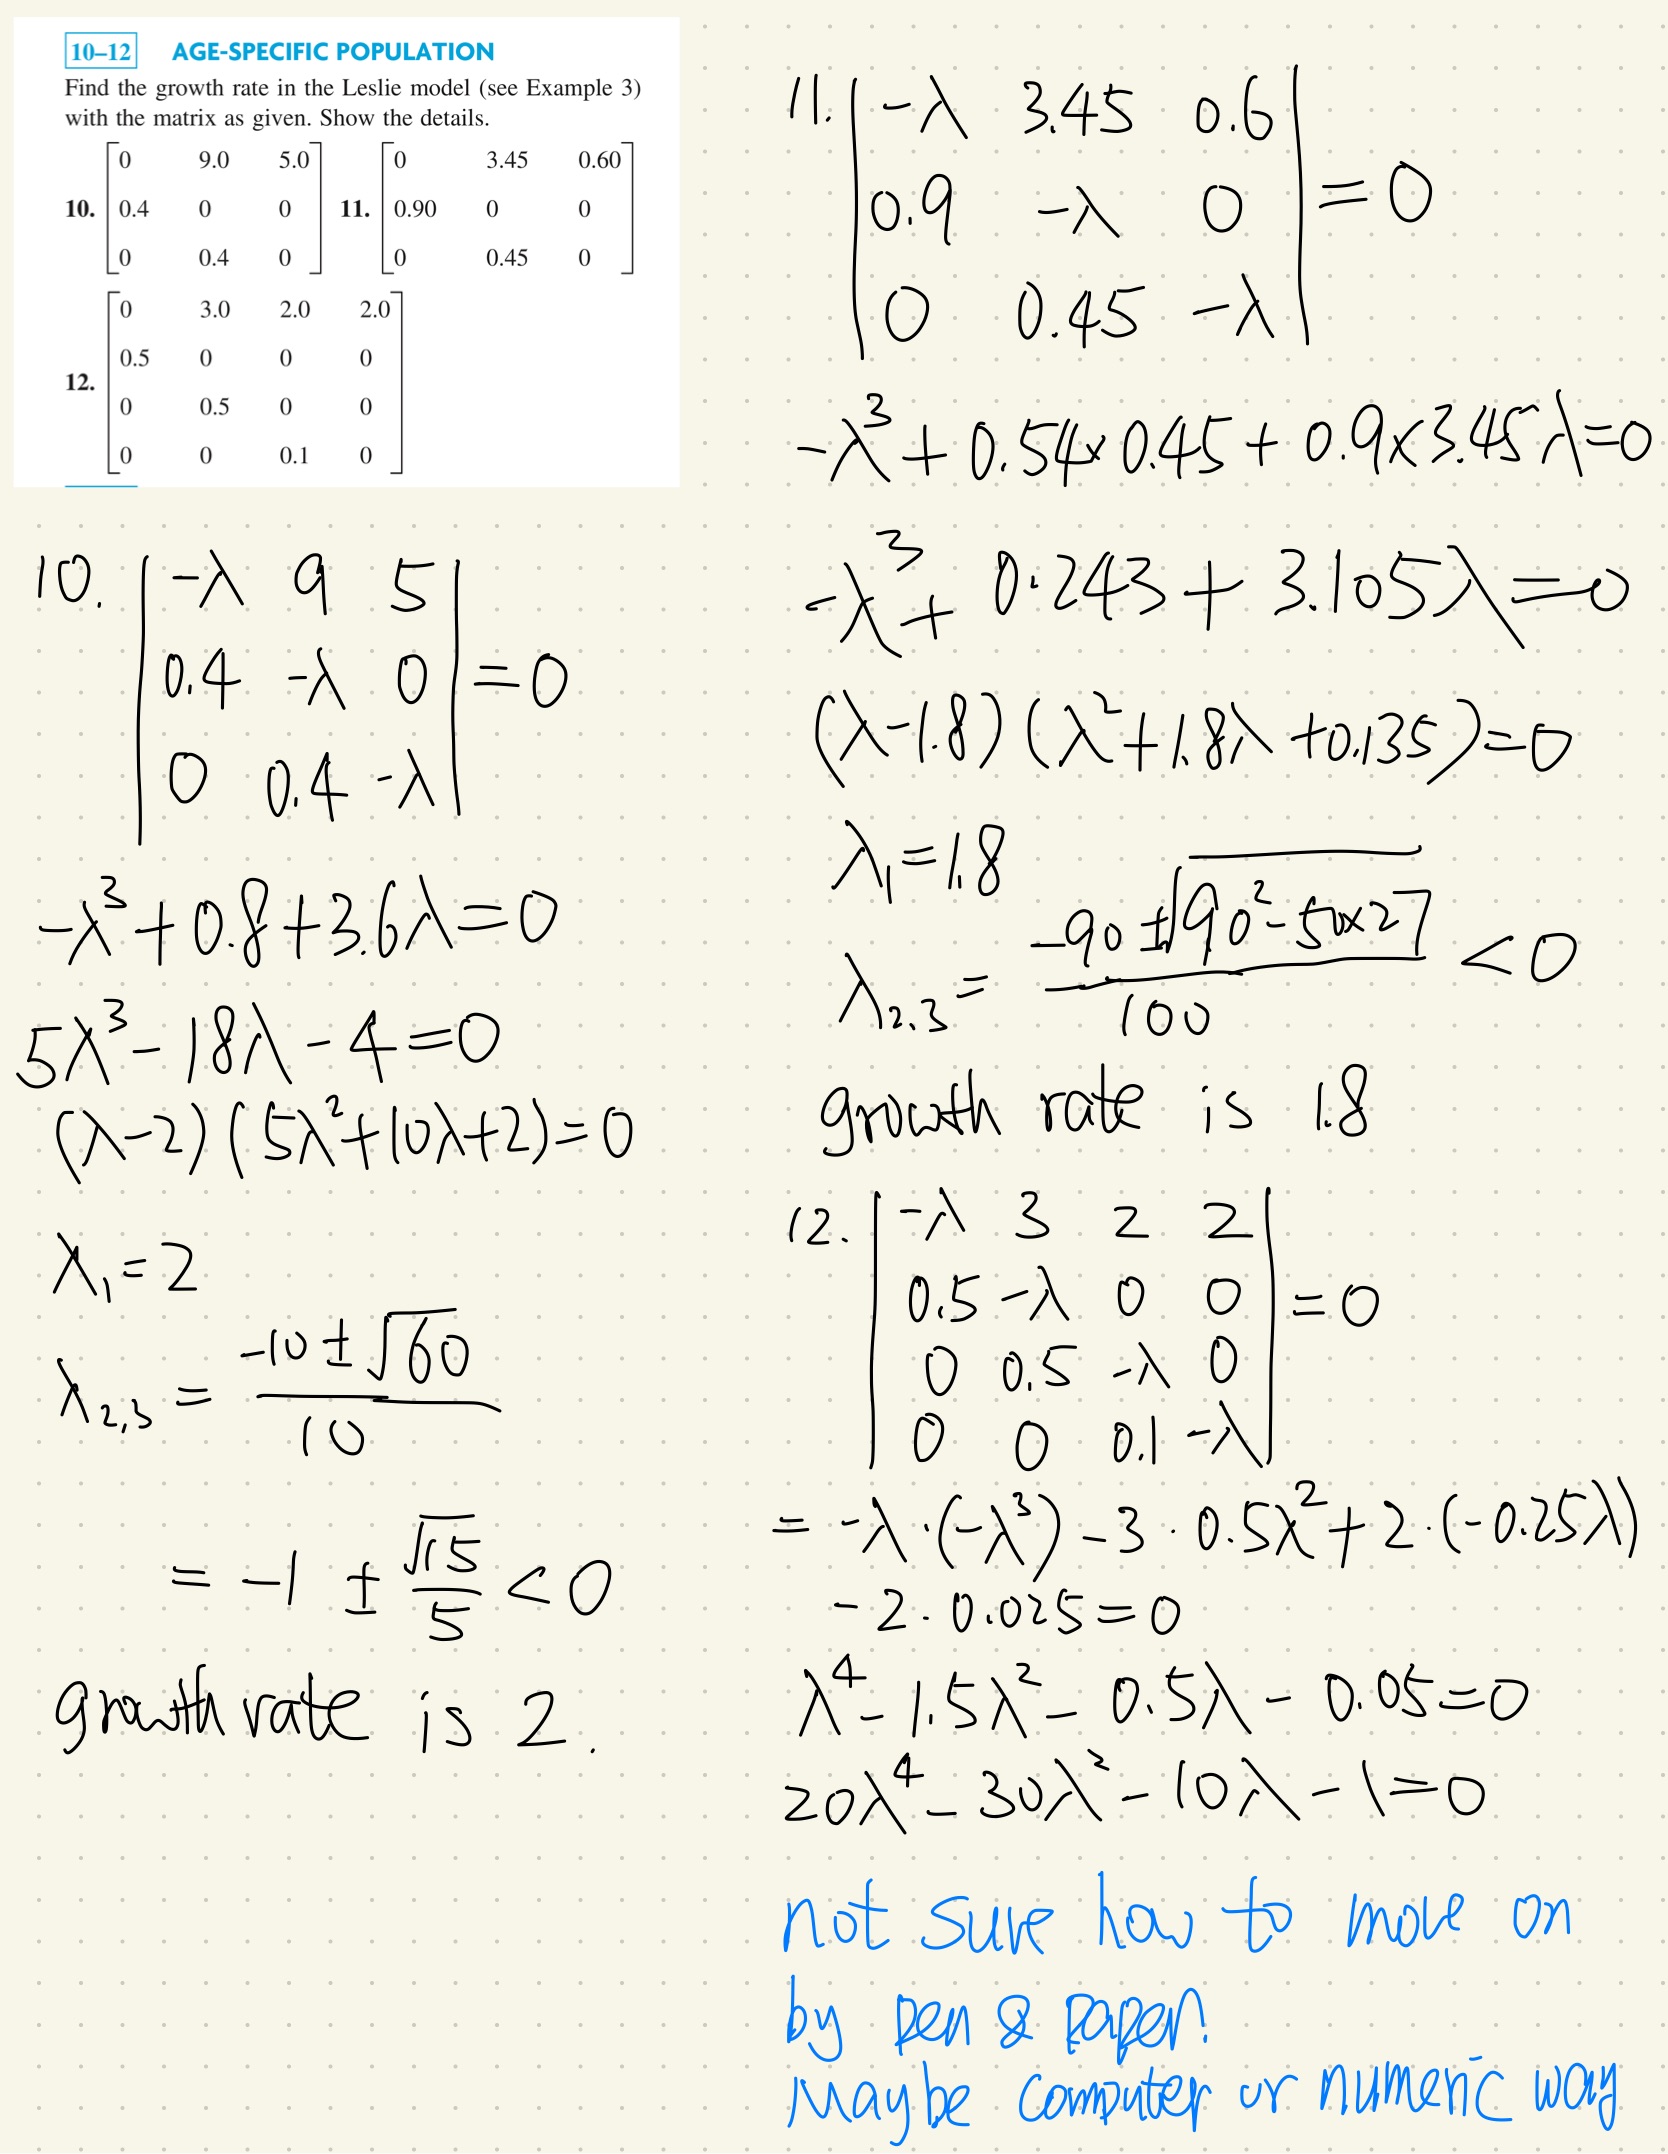 10–12 AGE-SPECIFIC POPULATION
Find the growth rate in the Leslie model (see Example 3)
with the matrix as given. Show the details.
10. [0 9.0 5.0
0.4 0 0
0 0.4 0]
11. [0 3.45 0.60
0.90 0 0
0 0.45 0]
12. [0 3.0 2.0 2.0
0.5 0 0 0
0 0.5 0 0
0 0 0.1 0]
10. |-λ 9 5|
|0.4 -λ 0| = 0
|0 0.4 -λ|
-λ³ + 0.8 + 3.6λ = 0
5λ³ - 18λ - 4 = 0
(λ-2)(5λ²+10λ+2) = 0
λ₁ = 2
λ₂,₃ = (-10 ± √60)/10
= -1 ± √15/5 < 0
growth rate is 2.
11. |-λ 3.45 0.6|
|0.9 -λ 0| = 0
|0 0.45 -λ|
-λ³ + 0.54×0.45 + 0.9×3.45λ = 0
-λ³ + 0.243 + 3.105λ = 0
(λ-1.8)(λ²+1.8λ+0.135) = 0
λ₁ = 1.8
λ₂,₃ = (-90 ± √(90² - 50×27))/100 < 0
growth rate is 1.8
12. |-λ 3 2 2|
|0.5 -λ 0 0| = 0
|0 0.5 -λ 0|
|0 0 0.1 -λ|
= -λ·(-λ³) - 3·0.5λ² + 2·(-0.25λ)
- 2·0.025 = 0
λ⁴ - 1.5λ² - 0.5λ - 0.05 = 0
20λ⁴ - 30λ² - 10λ - 1 = 0
not sure how to move on
by pen & paper.
Maybe computer or numeric way